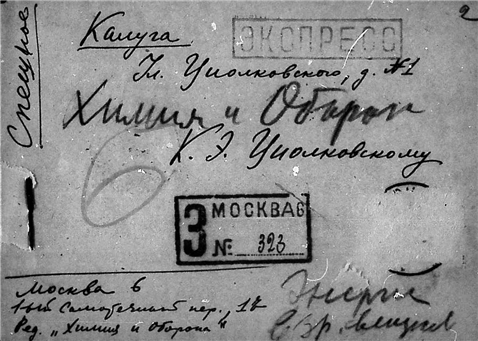 Спешное
Калуга
ЭКСПРЕСС
Ул. Циолковского, д. №1
Химия и Оборон
К. Э. Циолковскому
З МОСКВА 6
№ 323
Москва 6
1ый Самотечный пер., 17
Ред. „Химия и Оборона"